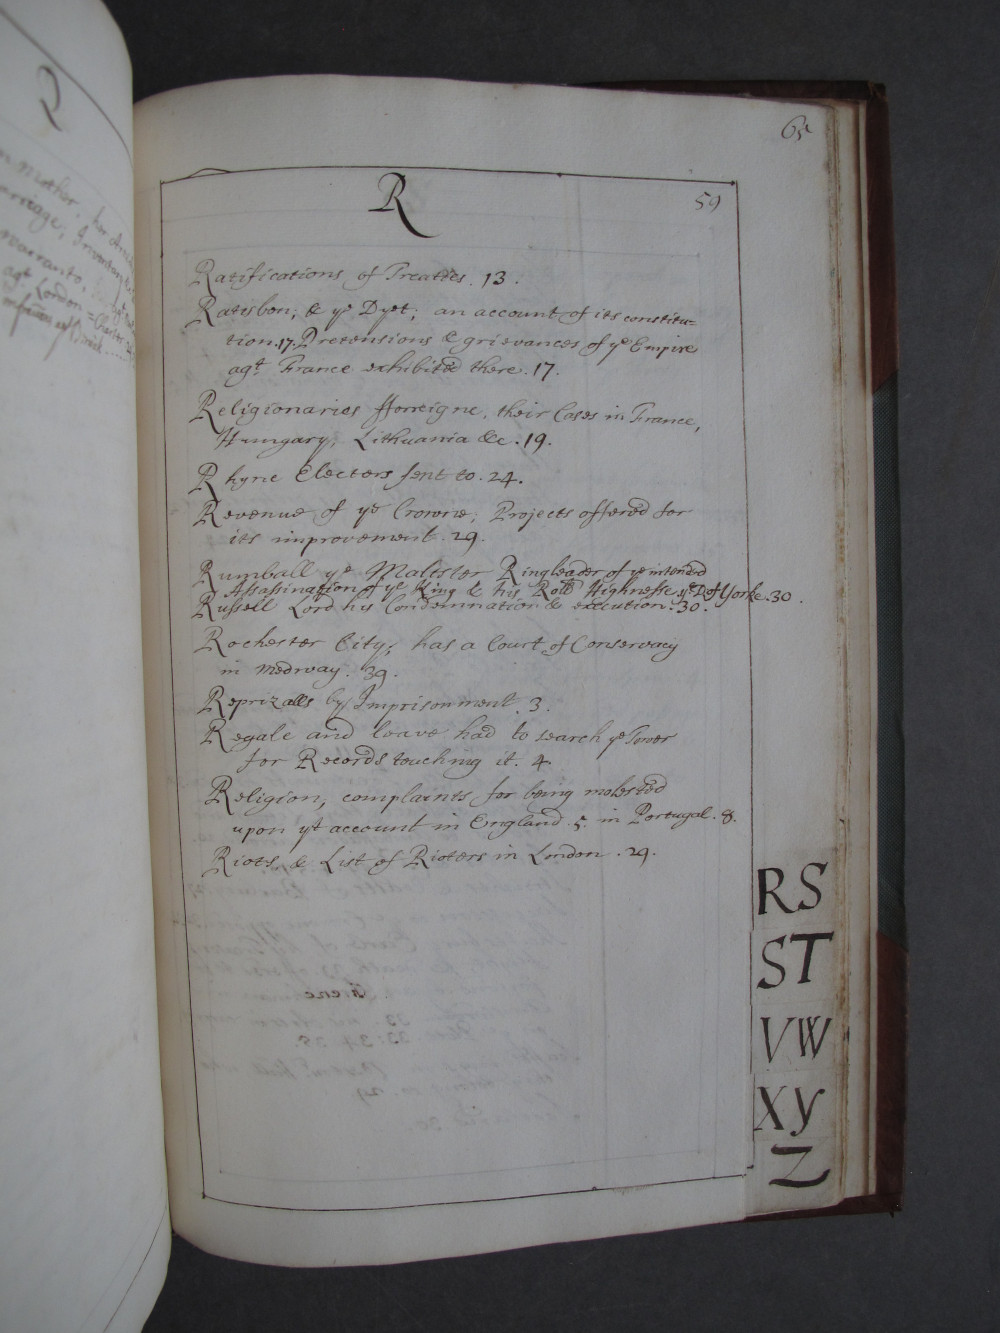 Q
65
R
59
Ratifications of Treaties. 13.
Ratisbon, & ye Dyet; an account of its constitu=
tion.17. Pretensions & grievances of ye Empire
agt. France exhibited there. 17.
Religionaries fforreigne, their Cases in France,
Hungary, Lithuania &c. 19.
Rhyne Electors sent to. 24.
Revenue of ye Crowne, Projects offered for
its improvement. 29.
Rumball ye Maltster Ringleader of ye intended
Assassination of ye King & his Royll Highnesse ye D. of Yorke. 30.
Russell Lord his Condemnation & execution. 30.
Rochester City, has a Court of Conservacy
in Medway. 39.
Reprizalls by Imprisonment. 3.
Regale and leave had to search ye Tower
for Records touching it. 4.
Religion, complaints for being molested
upon yt account in England. 5. in Portugal. 8.
Riots, & List of Rioters in London. 29.
RS
ST
VW
XY
Z